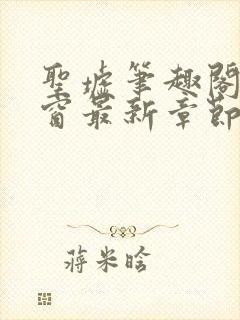 聖墟筆趣閣
窗最新章節
蔣米晗